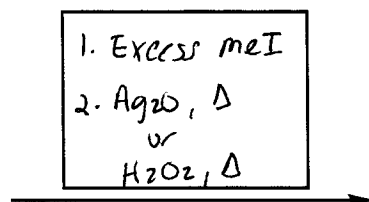 1. Excess meI
2. Ag2O, Δ
or
H2O2, Δ